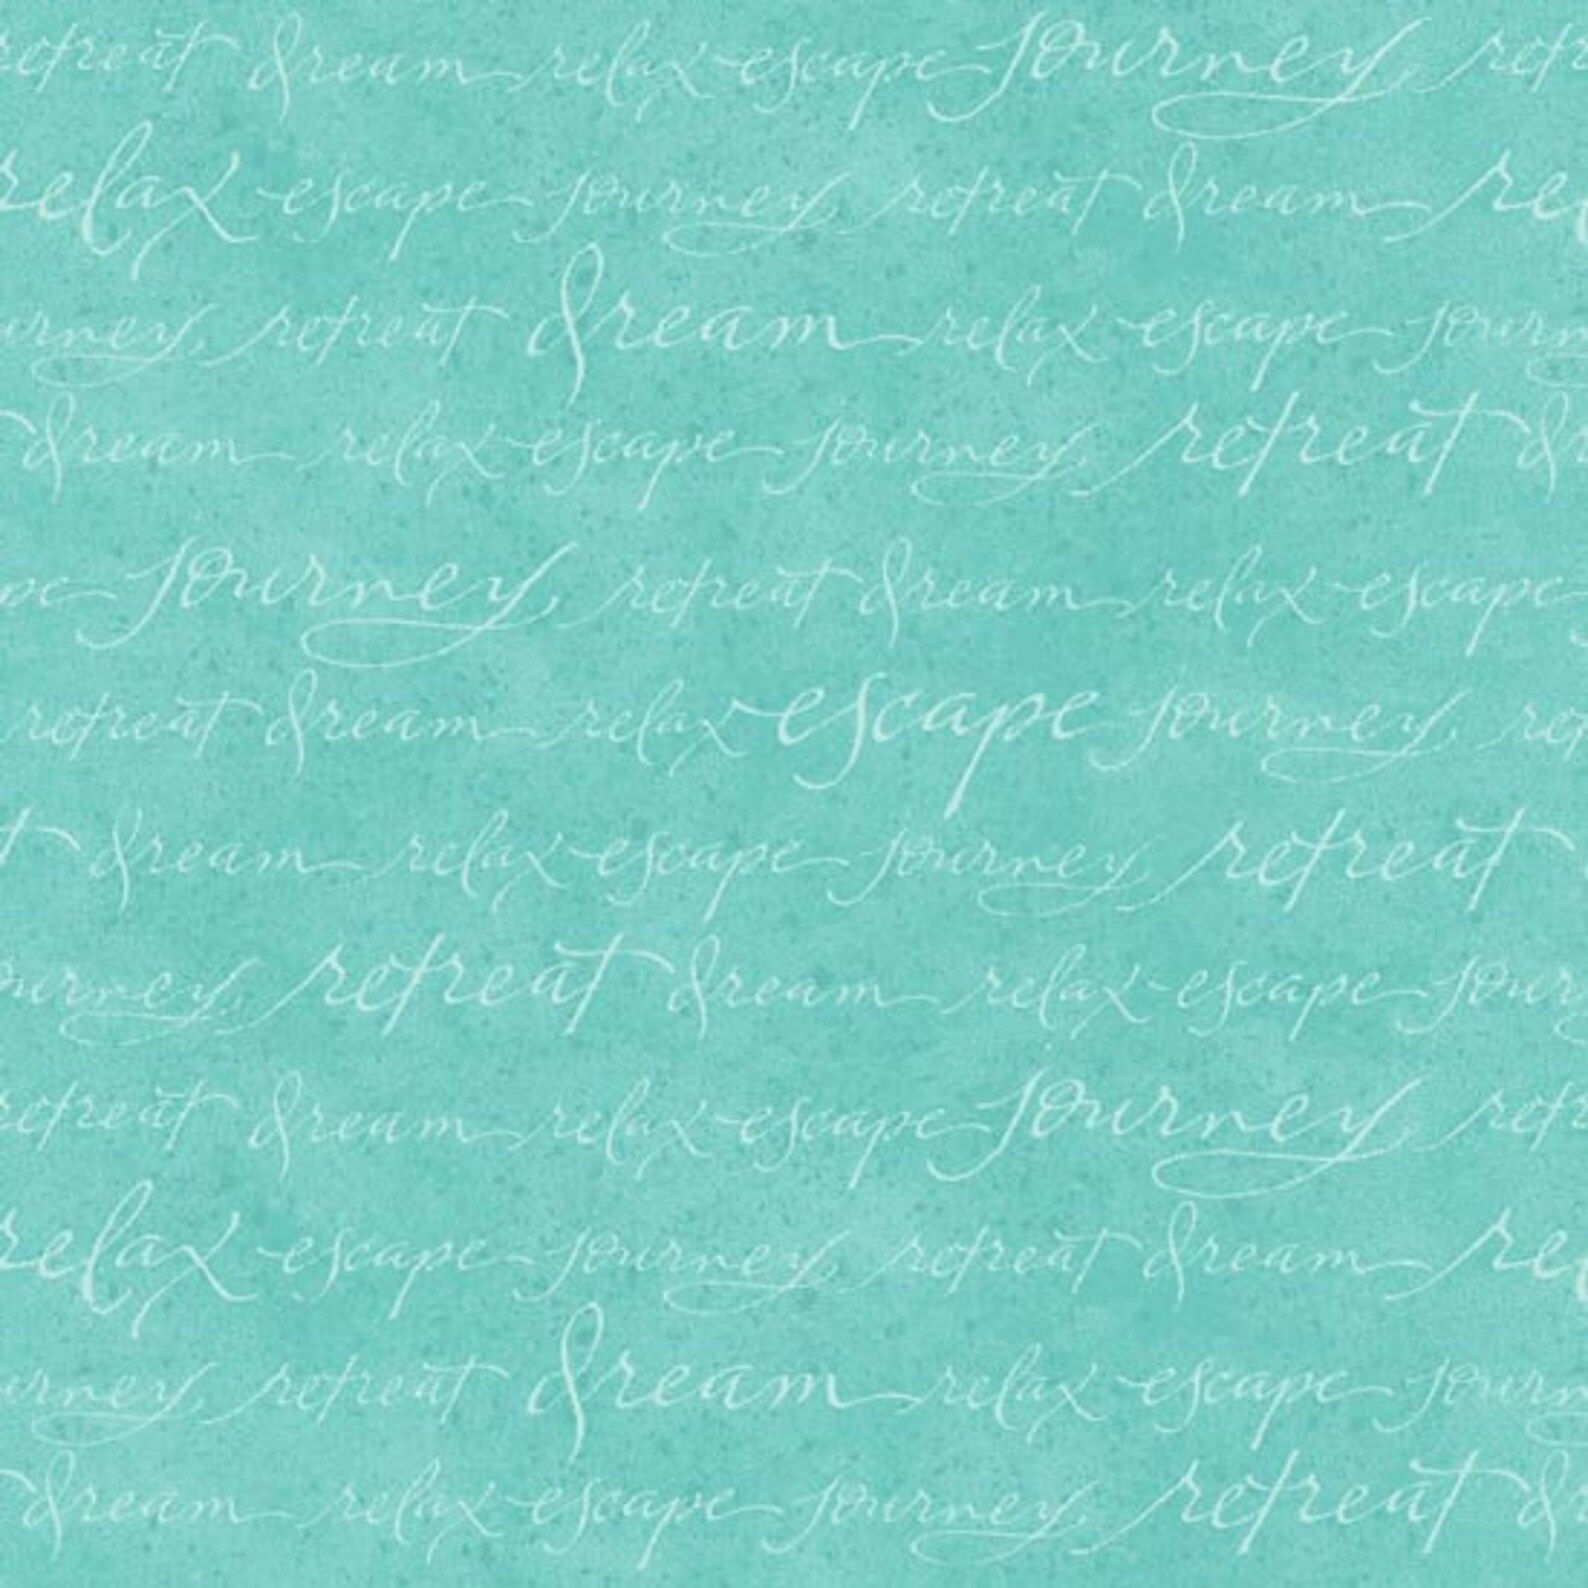 retreat dream relax escape journey retr
relax escape journey retreat dream re
urney retreat dream relax escape journ
dream relax escape journey retreat d
pe journey retreat dream relax escape
retreat dream relax escape journey ret
t dream relax escape journey retreat
ourney retreat dream relax escape jour
retreat dream relax escape journey retr
relax escape journey retreat dream re
urney retreat dream relax escape journ
dream relax escape journey retreat d